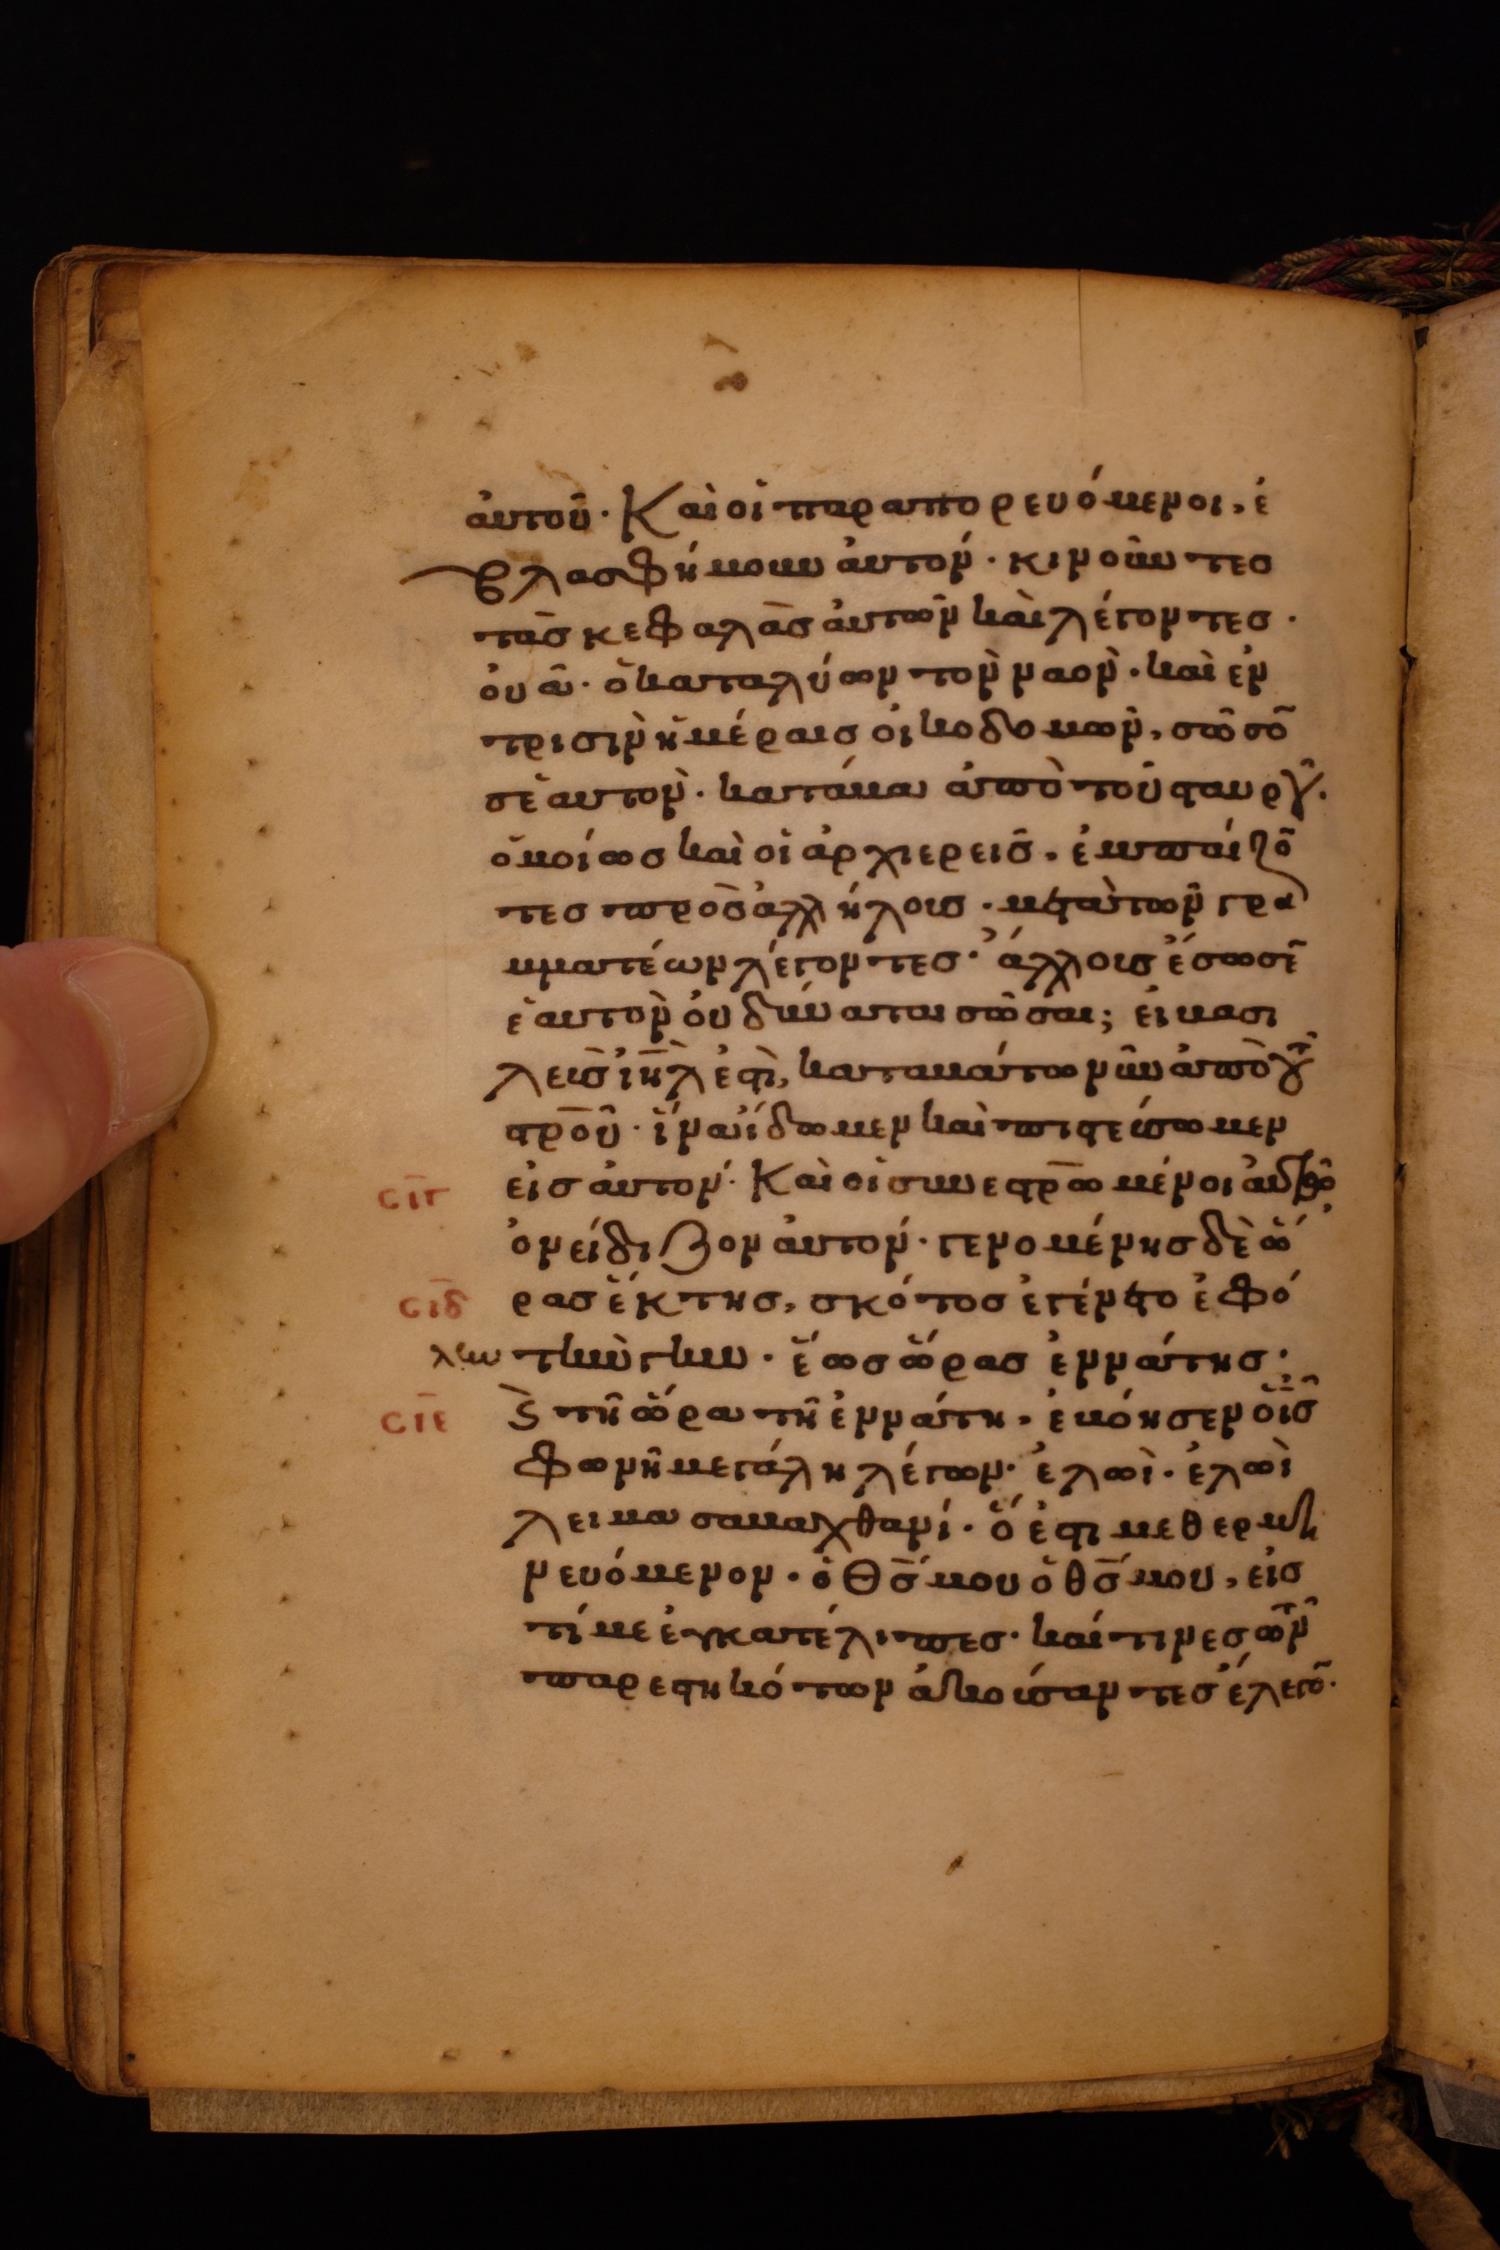 ἀυτοῦ· Καὶ οἱ παραπορευόμενοι, ἐ
βλασφήμουν ἀυτόν· κινοῦντεσ
τὰσ κεφαλὰσ ἀυτῶν καὶ λέγοντεσ·
ὀυᾶ· ὁ καταλύων τὸν ναὸν· καὶ ἐν
τρισὶν ἡμέραισ ὀικοδομῶν, σῶσο̄
σεἁυτὸν· κατάβα ἀπὸ τοῦ σταυροῦ.
ὁμοίωσ καὶ οἱ ἀρχιερεῖσ, ἐμπαίζο̄
τεσ πρὸσ ἀλλήλουσ· μετὰ τῶν γρα
μματέων λέγοντεσ· ἄλλουσ ἔσωσε̄
ἑαυτὸν ὀυ δύναται σῶσαι; ἐι βασι
λεὺσ ἰη̄λ ἐστὶ, καταβάτω νῦν ἀπὸ τοῦ
στρ̄οῦ· ἵνα ἴδωμεν καὶ πιστεύσωμεν
σιγ̄ ἐισ ἀυτον· Καὶ οἱ συνεστρ̄ωμένοι ἀυτῶ,
ὀνείδιζον ἀυτόν· γενομένησ δὲ ὥ
σιδ̄ ρασ ἕκτησ, σκότοσ ἐγένετο ἐφ ὅ
λην τὴν γῆν· ἕωσ ὥρασ ἐννάτησ·
σιε̄ Καὶ τῆ ὥρα τῆ ἐννάτη, ἐβόησεν ὁ ἰ̄σ
φωνῆ μεγάλη λέγων· ἐλωὶ· ἐλωὶ
λειμα σαβαχθανί· ὅ ἐστι μεθερμη
νευόμενον· ὁ Θ̄σ μου ὁ θ̄σ μου, εἰσ
τί με ἐγκατέλιπεσ· καί τινεσ τῶν
παρεστηκότων ἀκούσαντεσ ἔλεγο̄·